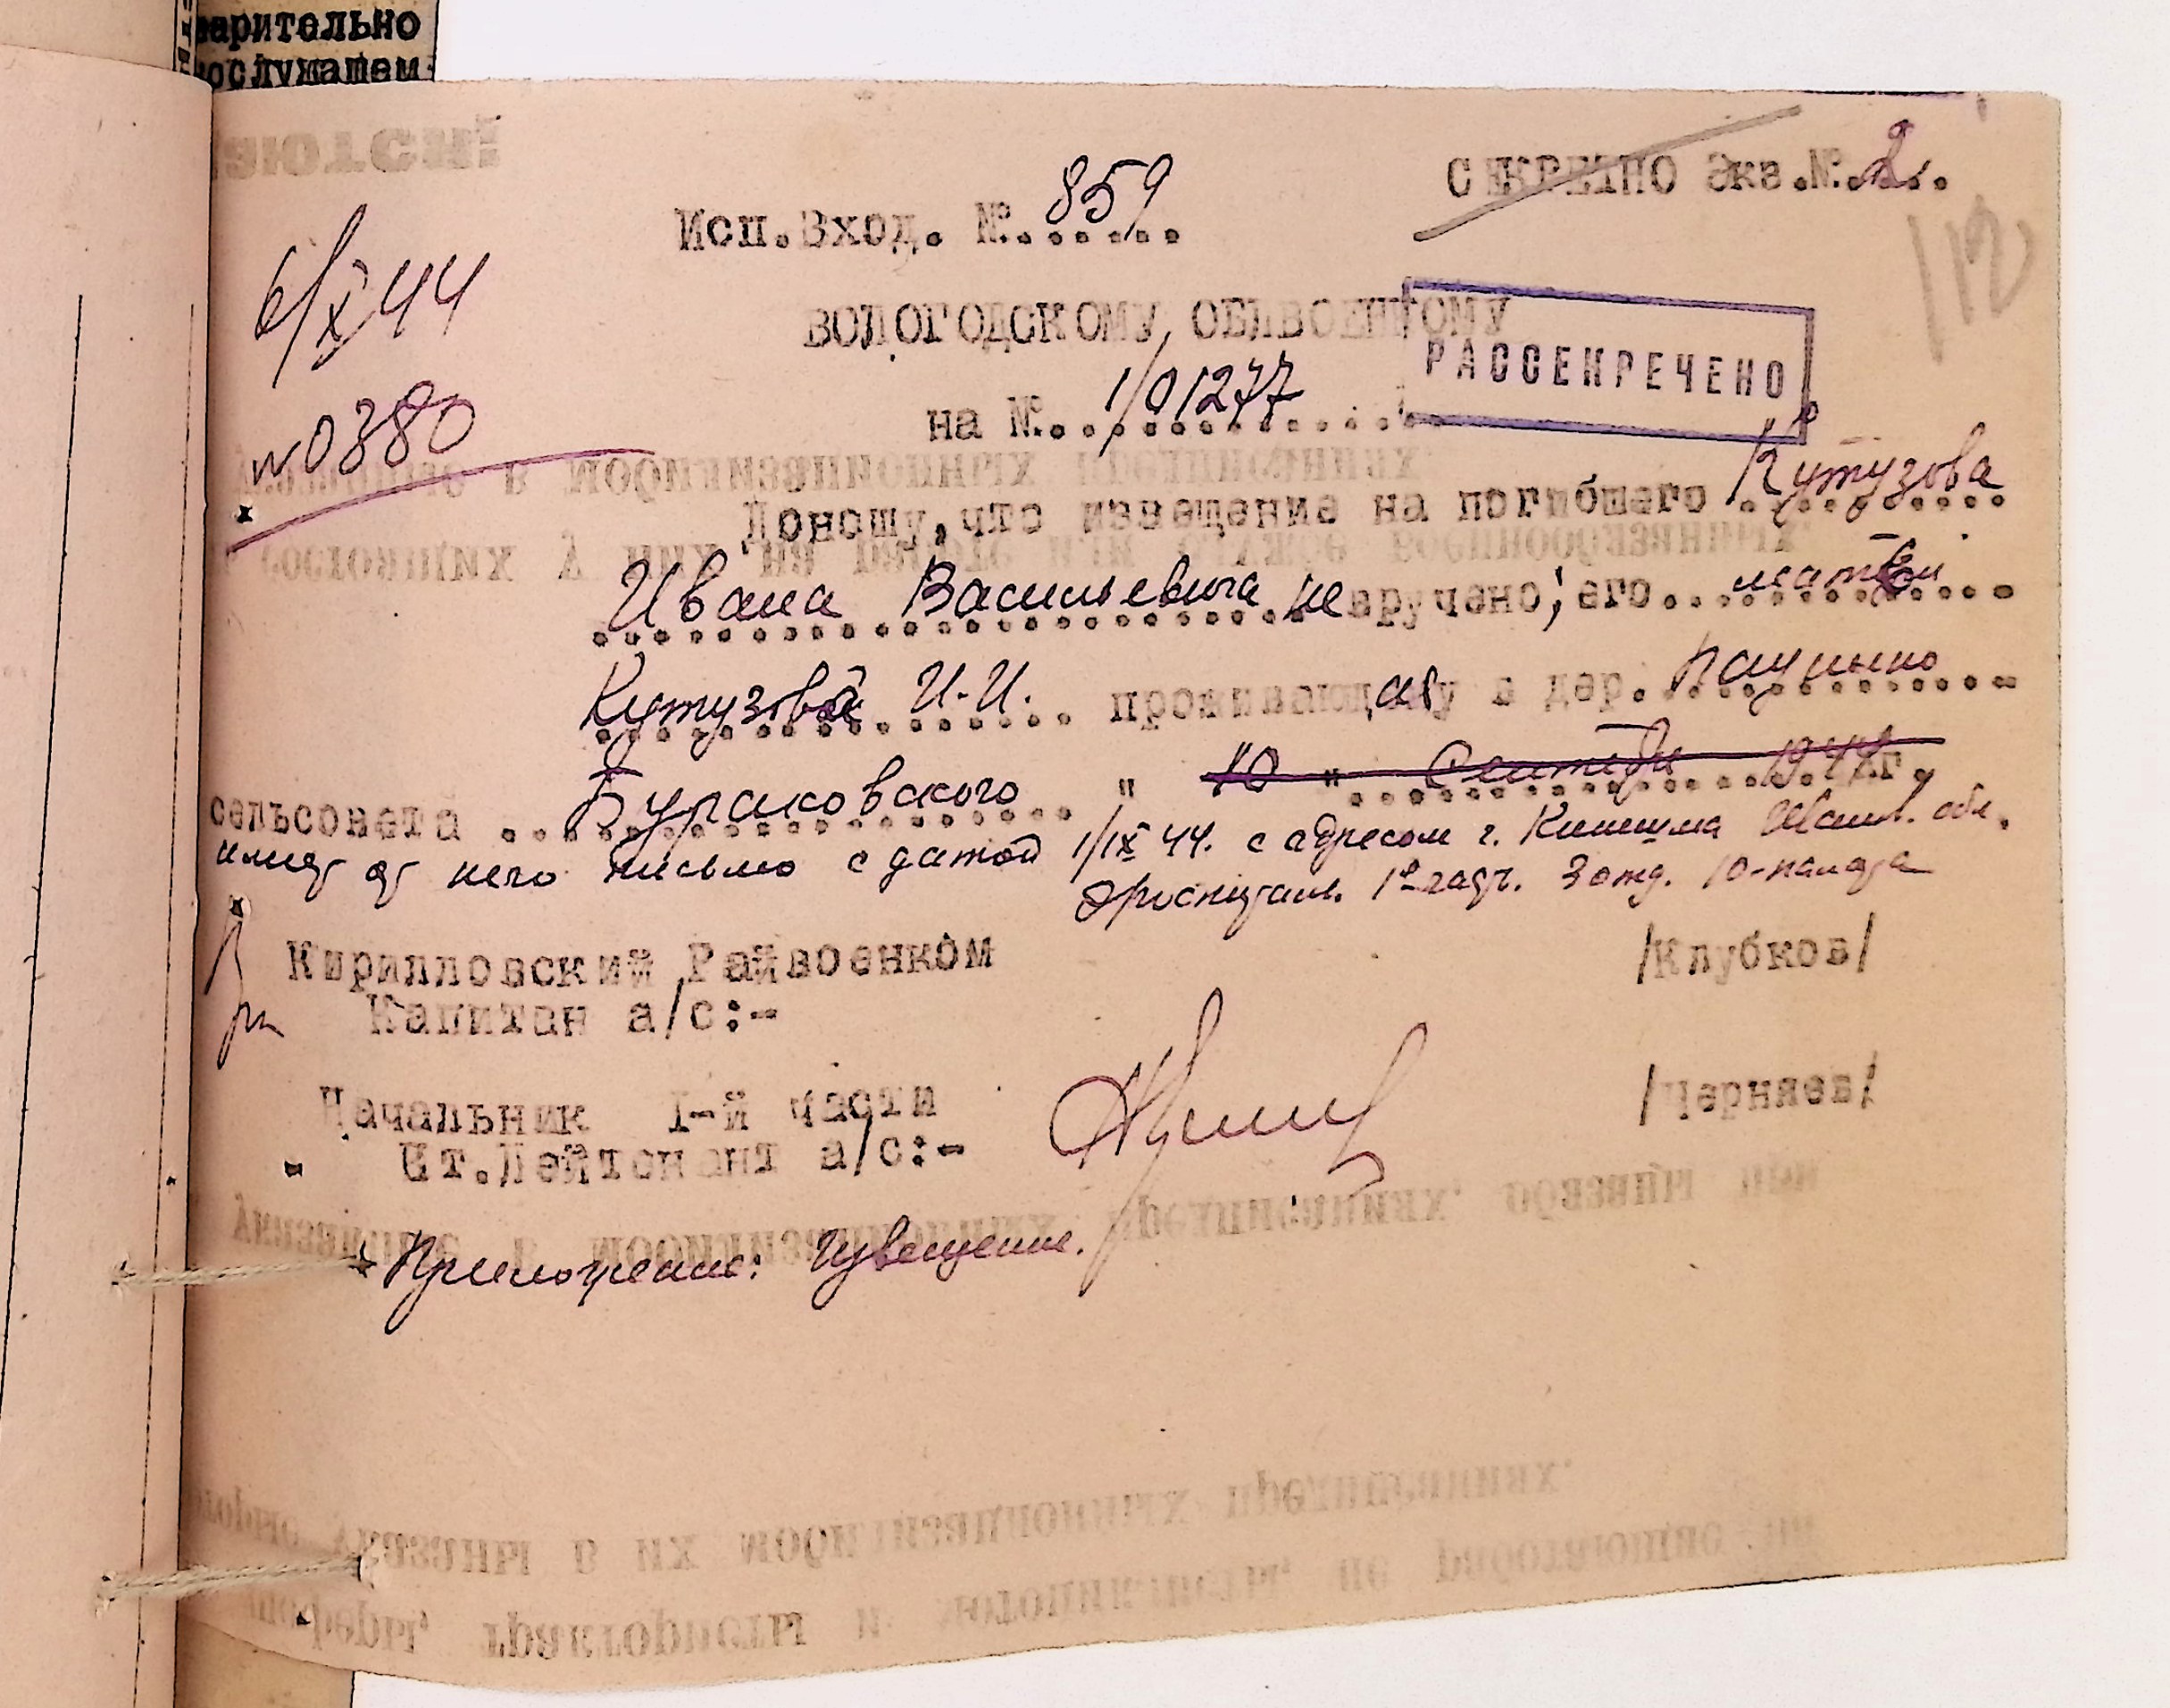 варительно
ослужащем
СЕКРЕТНО Экз.№.2..
Исп.Вход. №.859
112
6/X 44
ВОЛОГОДСКОМУ ОБЛВОЕНКОМУ
РАССЕКРЕЧЕНО
на №..1/01277
№0380
Доношу, что извещение на погибшего Кутузова
Ивана Васильевича не вручено, его матери
Кутузовой И.И. проживающ в дер.
сельсовета Бураковского " 10 " Сентября 1944г.
имеет от него письмо с датой 1/IX 44. с адресом г. Кинешма Иван. обл.
Эвогоспиталь 3 отд. 10-палата
Кирилловский Райвоенком /Клубков/
Капитан а/с:-
Начальник I-й части /Черняев/
Шт.Лейтенант а/с:-
Приложение: Извещение.